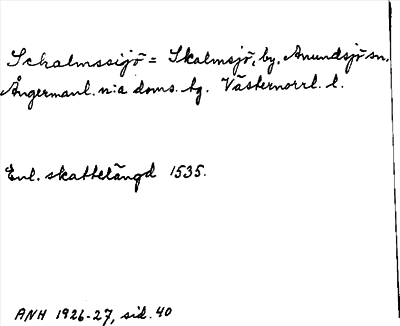 Schalmssijö = Skalmsjö, by, Anundsjö sn,
Ångermanl. n:a doms. tg. Västernorrl. l.
Enl. skattelängd 1535.
ANH 1926-27, sid. 40